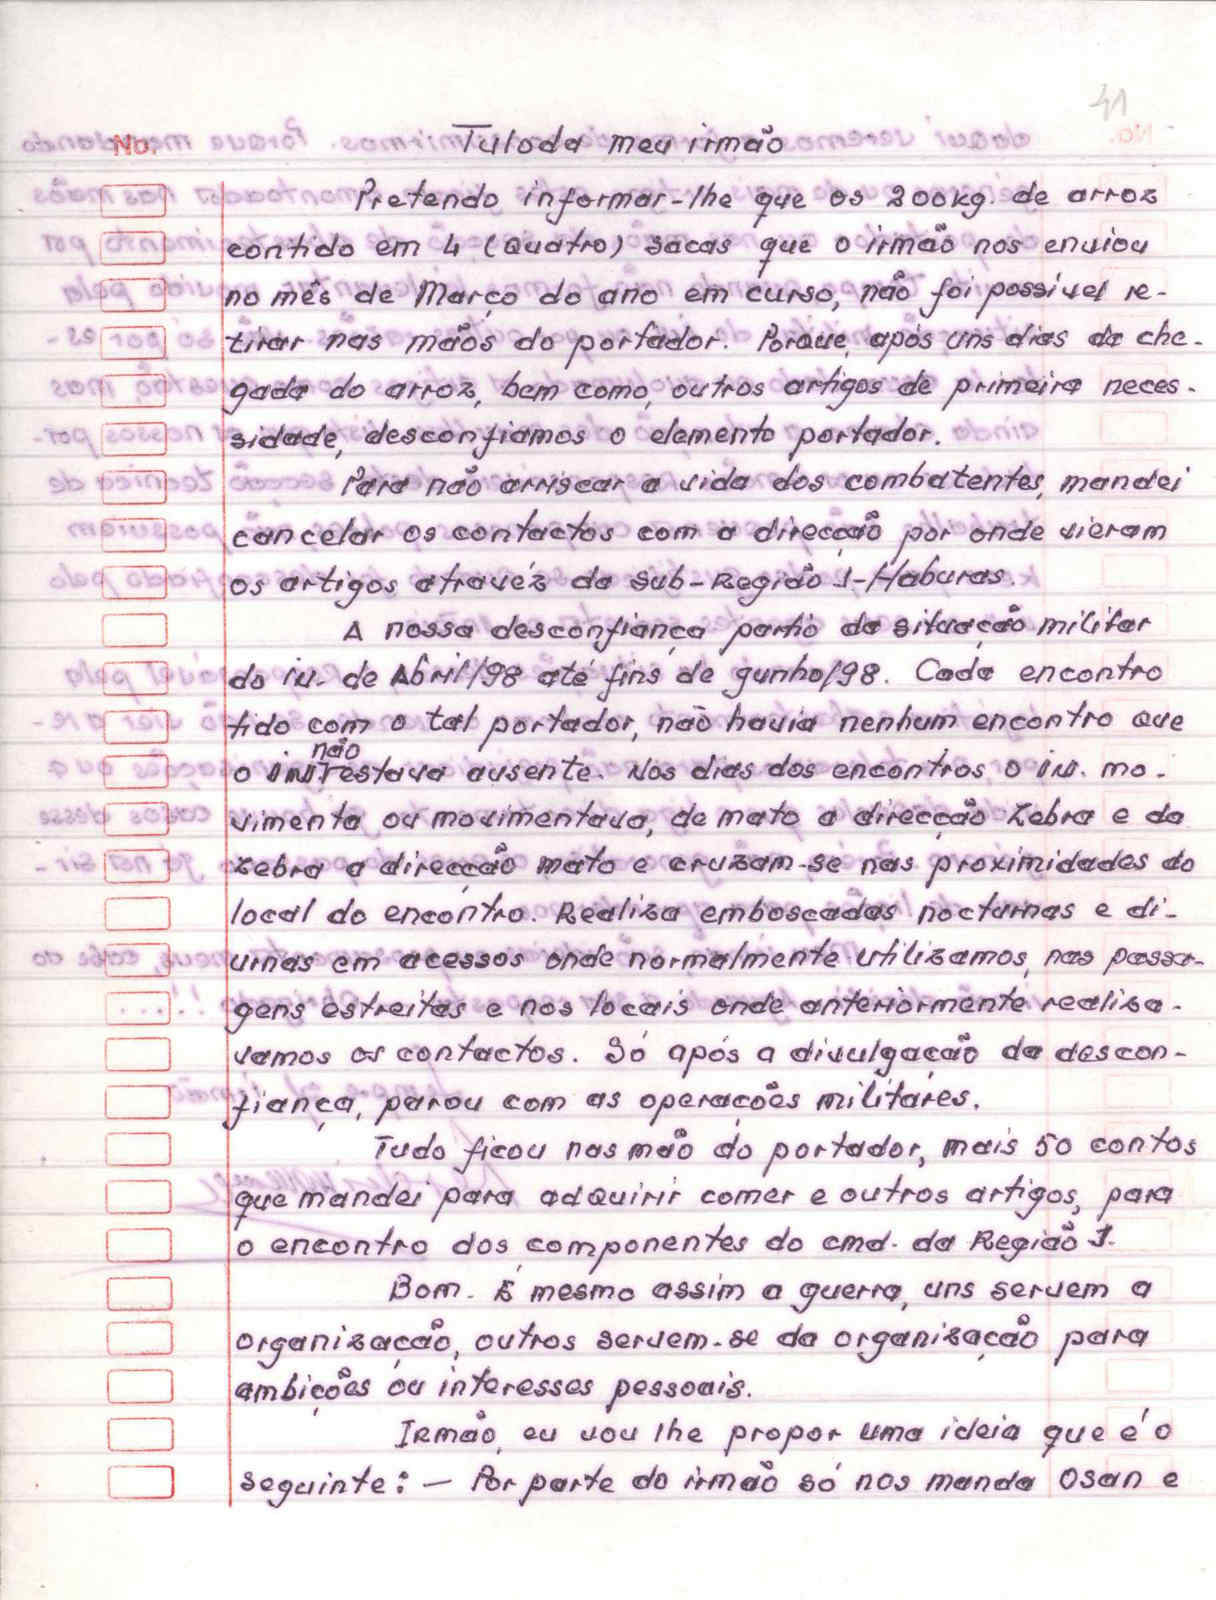 41
No.
Tuloda meu irmão
Pretendo informar-lhe que os 200kg. de arroz
contido em 4 (quatro) sacas que o irmão nos enviou
no mês de Março do ano em curso, não foi possível re-
tirar nas mãos do portador. Porque, após uns dias da che-
gada do arroz, bem como, outros artigos de primeira neces-
sidade, desconfiamos o elemento portador.
Para não arriscar a vida dos combatentes, mandei
cancelar os contactos com a direcção por onde vieram
os artigos atravéz da Sub-Região 1-Haburas.
A nossa desconfiança partio da situação militar
do in. de Abril/98 até fins de gunho/98. Cada encontro
tido com o tal portador, não havia nenhum encontro que
não
o in. estava ausente. Nos dias dos encontros, o in. mo-
vimenta ou movimentava, de mato a direcção Zebra e da
Zebra a direcção mato e cruzam-se nas proximidades do
local do encontro. Realiza emboscadas nocturnas e di-
urnas em acessos onde normalmente utilizamos, nas passa-
gens estreitas e nos locais onde anteriormente realiza-
vamos os contactos. Só após a divulgação da descon-
fiança, parou com as operações militares.
Tudo ficou nas mão do portador, mais 50 contos
que mandei para adquirir comer e outros artigos, para
o encontro dos componentes do cmd. da Região 1.
Bom. É mesmo assim a guerra, uns servem a
organização, outros servem-se da organização para
ambições ou interesses pessoais.
Irmão, eu vou lhe propor uma ideia que é o
seguinte: — Por parte do irmão só nos manda Osan e